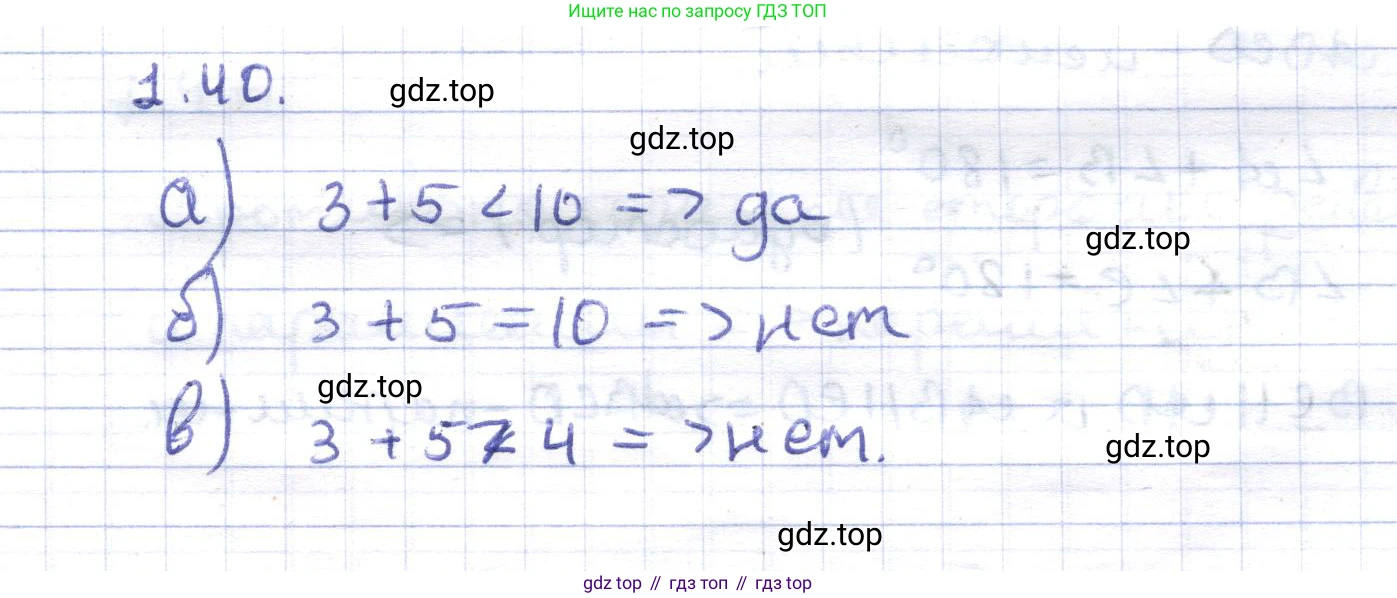 Ищите нас по запросу ГДЗ ТОП
1.40.
gdz.top
gdz.top
а) 3 + 5 < 10 => да
gdz.top
б) 3 + 5 = 10 => нет
gdz.top
в) 3 + 5 4 => нет.
gdz.top
gdz.top
gdz top // гдз топ // гдз top